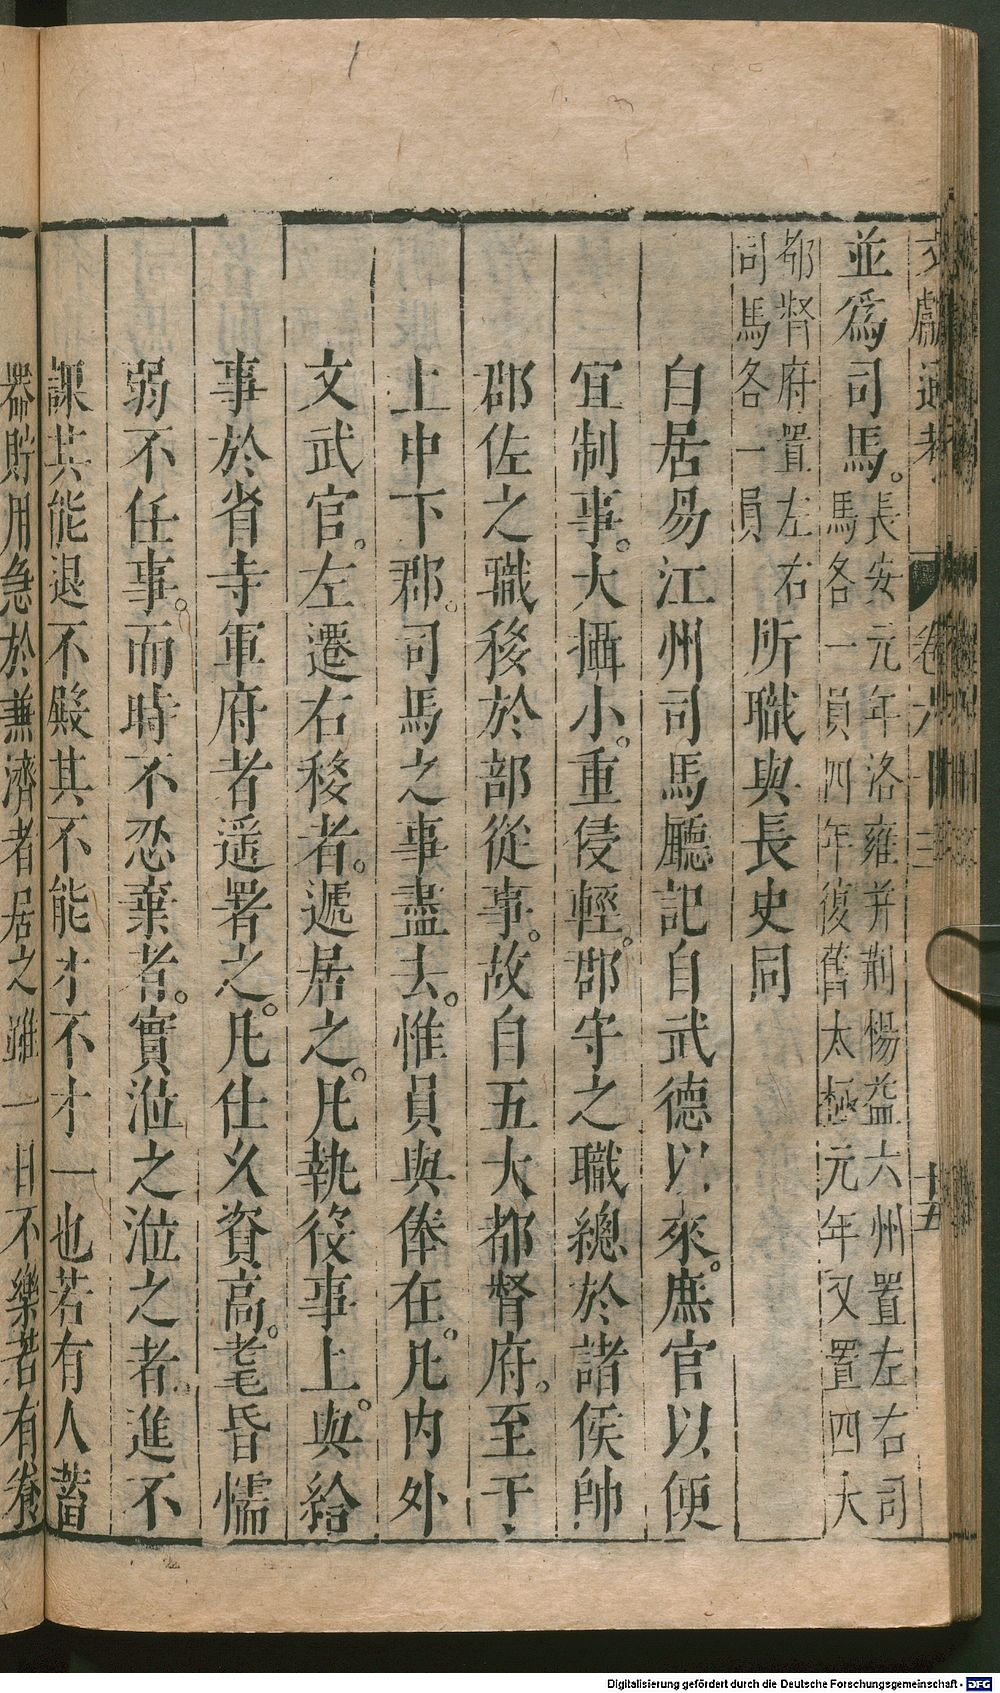 文獻通考 卷六十三 十五
並爲司馬。長安元年洛雍并荆楊益六州置左右司
馬各一員四年復舊太極元年又置四大
都督府置左右
司馬各一員所職與長史同
白居易江州司馬廳記自武德以來。庶官以便
宜制事。大攝小。重侵輕。郡守之職總於諸侯帥
郡佐之職移於部從事。故自五大都督府。至于
上中下郡。司馬之事盡去。惟員與俸在。凡内外
文武官。左遷右移者。遞居之。凡執役事上。與給
事於省寺軍府者遥署之。凡仕久資高。耄昏懦
弱不任事。而時不忍棄者。實涖之涖之者。進不
課其能退不殿其不能才不才一也若有人蓄
器貯用急於兼濟者居之雖一日不樂若有養
Digitalisierung gefördert durch die Deutsche Forschungsgemeinschaft - DFG